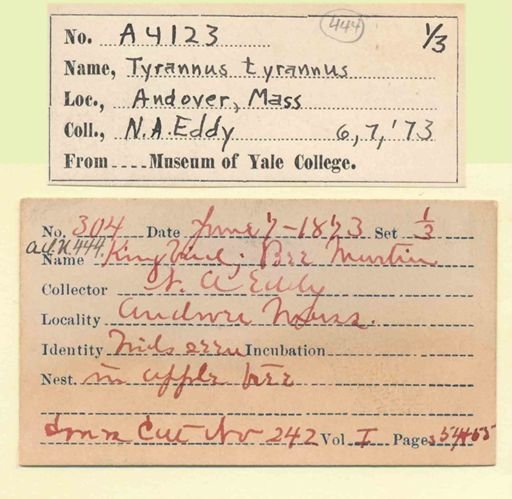 444
No. A4123 1/3
Name, Tyrannus tyrannus
Loc., Andover, Mass
Coll., N.A. Eddy 6, 7, '73
From .... Museum of Yale College.
No. 304 Date June 7-1873 Set 1/3
a.o.u 444.
Name Kingbird. Bee Martin
Collector N. A Eddy
Locality Andover Mass.
Identity Incubation
Nest. in apple tree
Cat No 242 Vol. I Pages 54+55